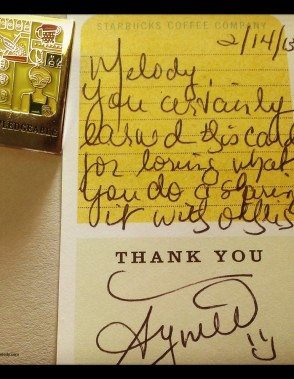 STARBUCKS COFFEE COMPANY
2/14/13
Melody,
You certainly
earned this card
for loving what
you do & sharing
it with others
EDGEABLE
THANK YOU